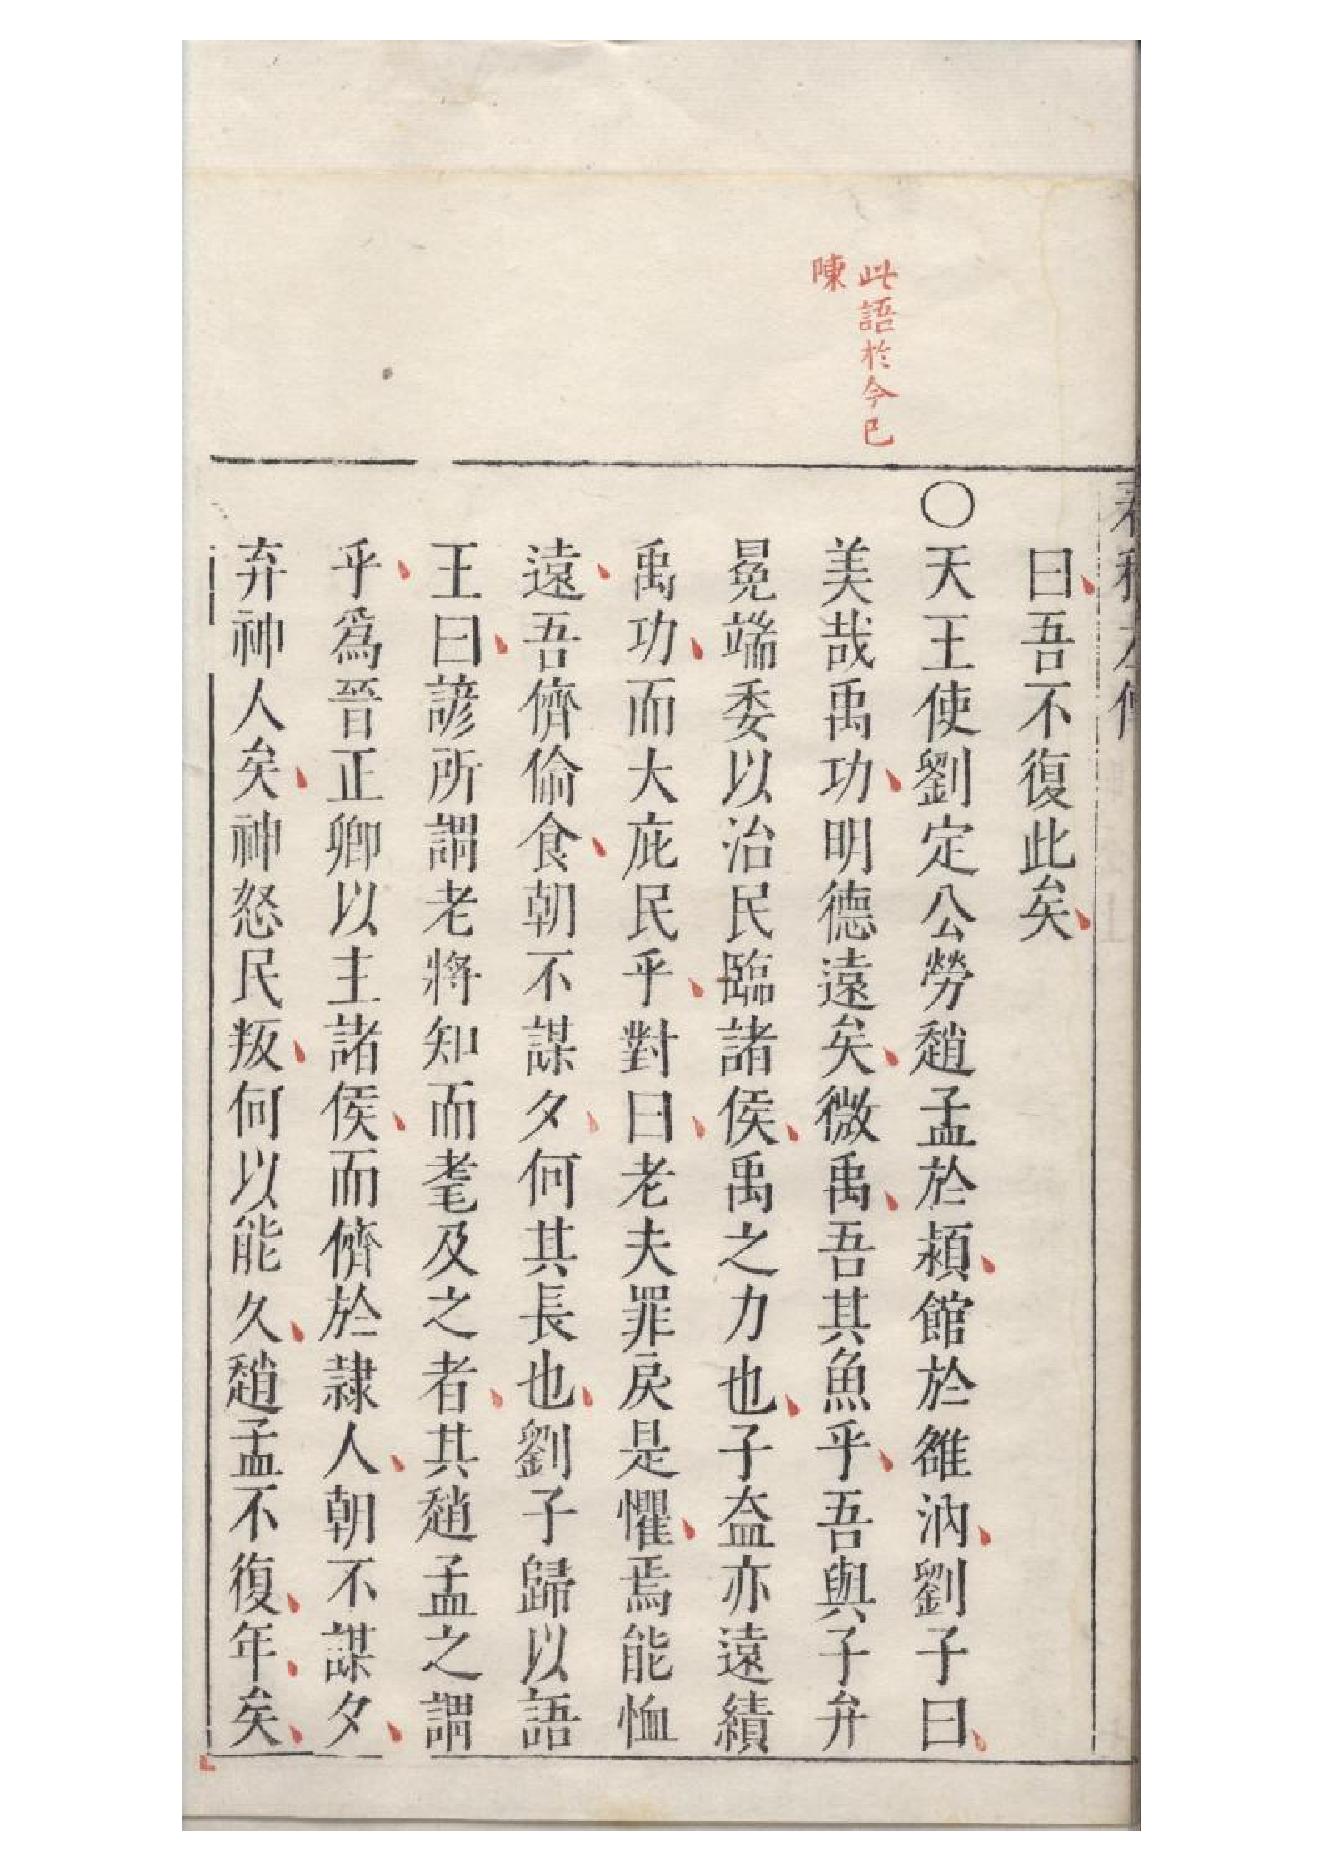 曰吾不復此矣
○天王使劉定公勞趙孟於潁館於雒汭劉子曰
美哉禹功明德遠矣微禹吾其魚乎吾與子弁
冕端委以治民臨諸侯禹之力也子盍亦遠績
禹功而大庇民乎對曰老夫罪戾是懼焉能恤
遠吾儕偷食朝不謀夕何其長也劉子歸以語
王曰諺所謂老將知而耄及之者其趙孟之謂
乎爲晉正卿以主諸侯而儕於隷人朝不謀夕
弃神人矣神怒民叛何以能久趙孟不復年矣
此語於今已
陳